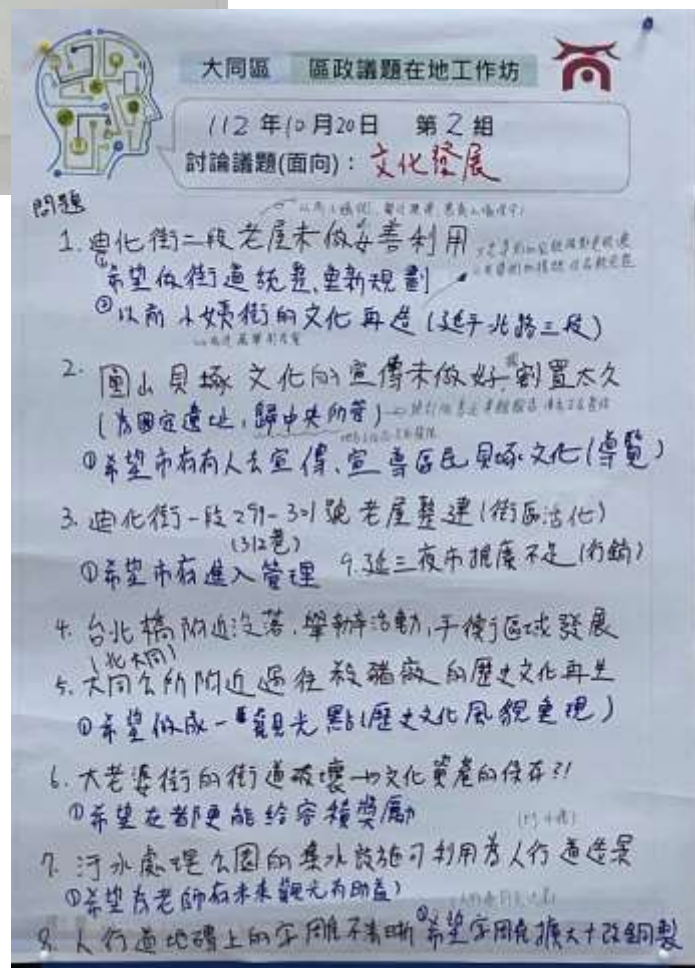 大同區 區政議題在地工作坊
112年10月20日 第2組
討論議題(面向)：文化發展
問題
1. 迪化街二段老屋未做妥善利用
①希望做街道統整、重新規劃
②以前 小姨街的文化再造(延平北路三段)
2. 圓山貝塚文化的宣傳未做好 割置太久
(為國定遺址，歸中央所管)
①希望市府有人去宣傳、宣導區民貝塚文化(導覽)
3. 迪化街一段291-301號老屋整建(街區活化)
(312巷)
①希望市府進入管理 9.延三夜市推廣不足(行銷)
4. 台北橋附近沒落，舉辦活動，平衡區域發展
(北大同)
5. 大同公所附近過往殺豬廠的歷史文化再生
①希望做成一觀光點(歷史文化風貌重現)
6. 大老婆街的街道破壞→文化資產的保存?!
①希望在都更能給容積獎勵
7. 汙水處理公園的集水設施可利用為人行道造景
8. 人行道地磚上的字體不清晰 ②希望字體擴大+改銅製